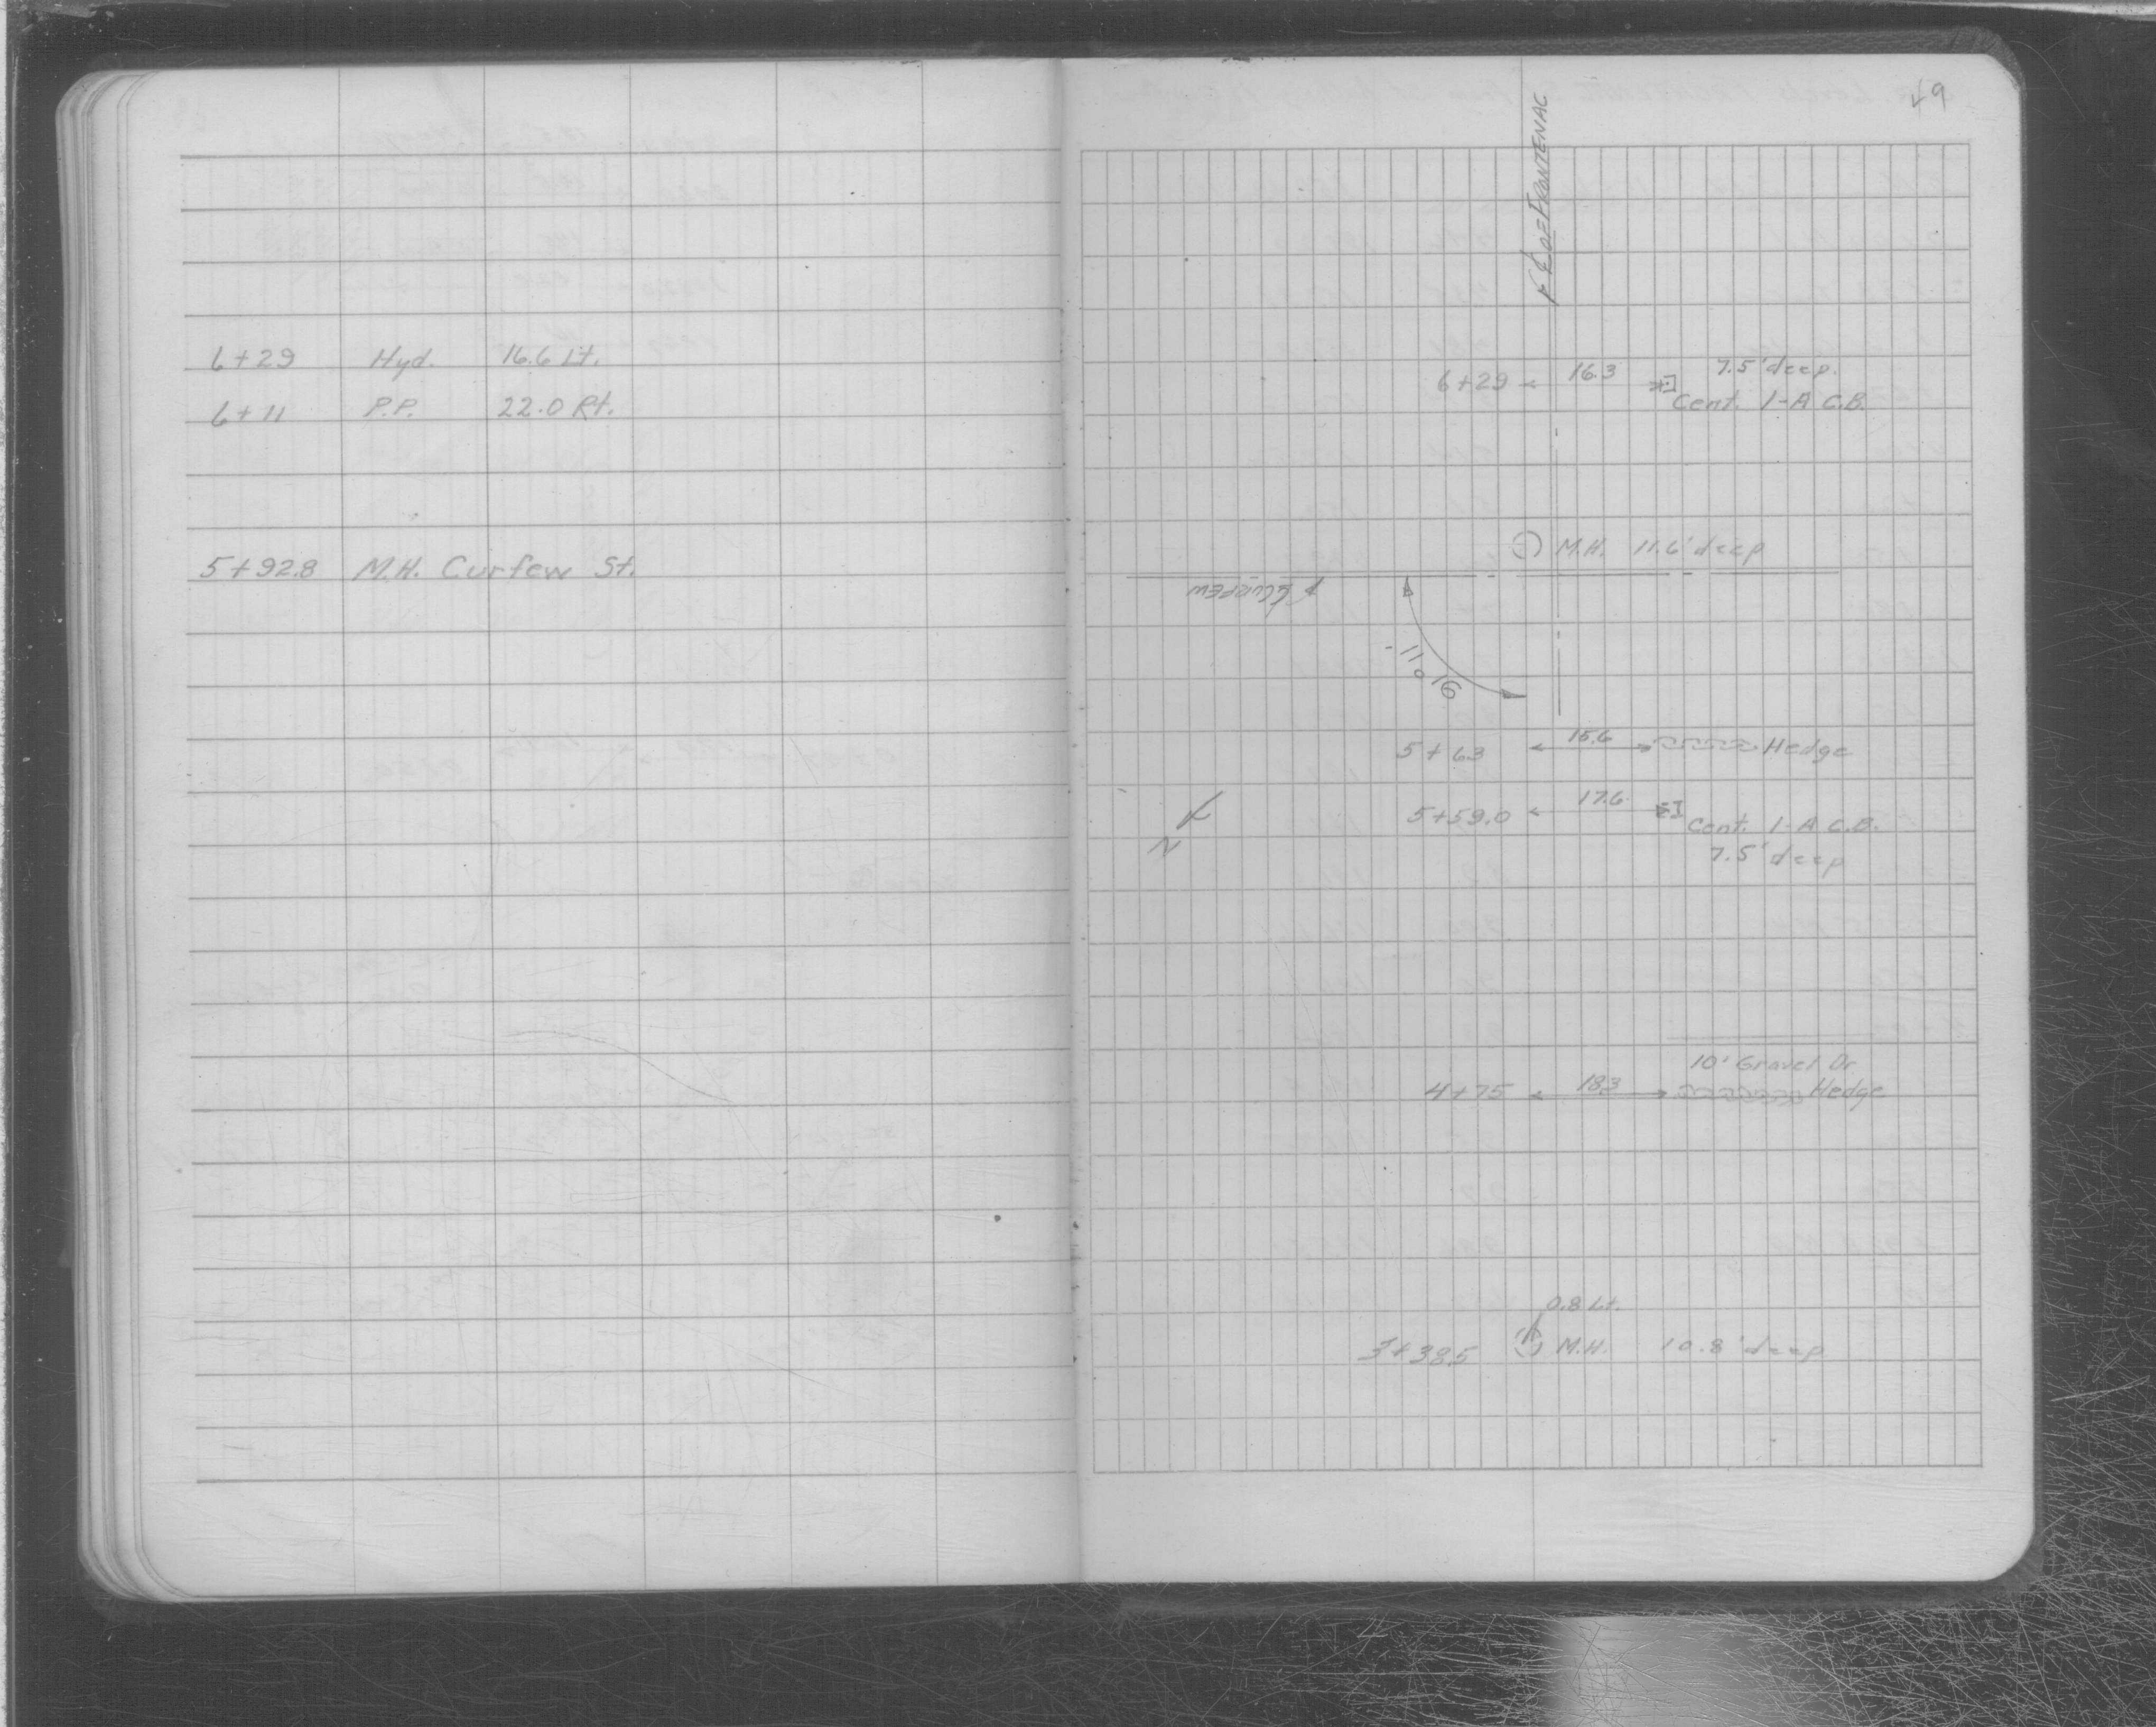 6+29 Hyd. 16.6 Lt.
6+11 P.P. 22.0 Rt.
5+92.8 M.H. Curfew St.
49
℄ OF FRONTENAC
6+29 16.3 7.5' deep.
Cent. 1-A C.B.
M.H. 11.6' deep
℄ CURFEW
91°11'
5+63 15.6 Hedge
5+59.0 17.6
Cent. 1-A C.B.
7.5' deep
N
10' Gravel Dr.
4+75 18.3 Hedge
0.8 Lt.
3+38.5 M.H. 10.8' deep